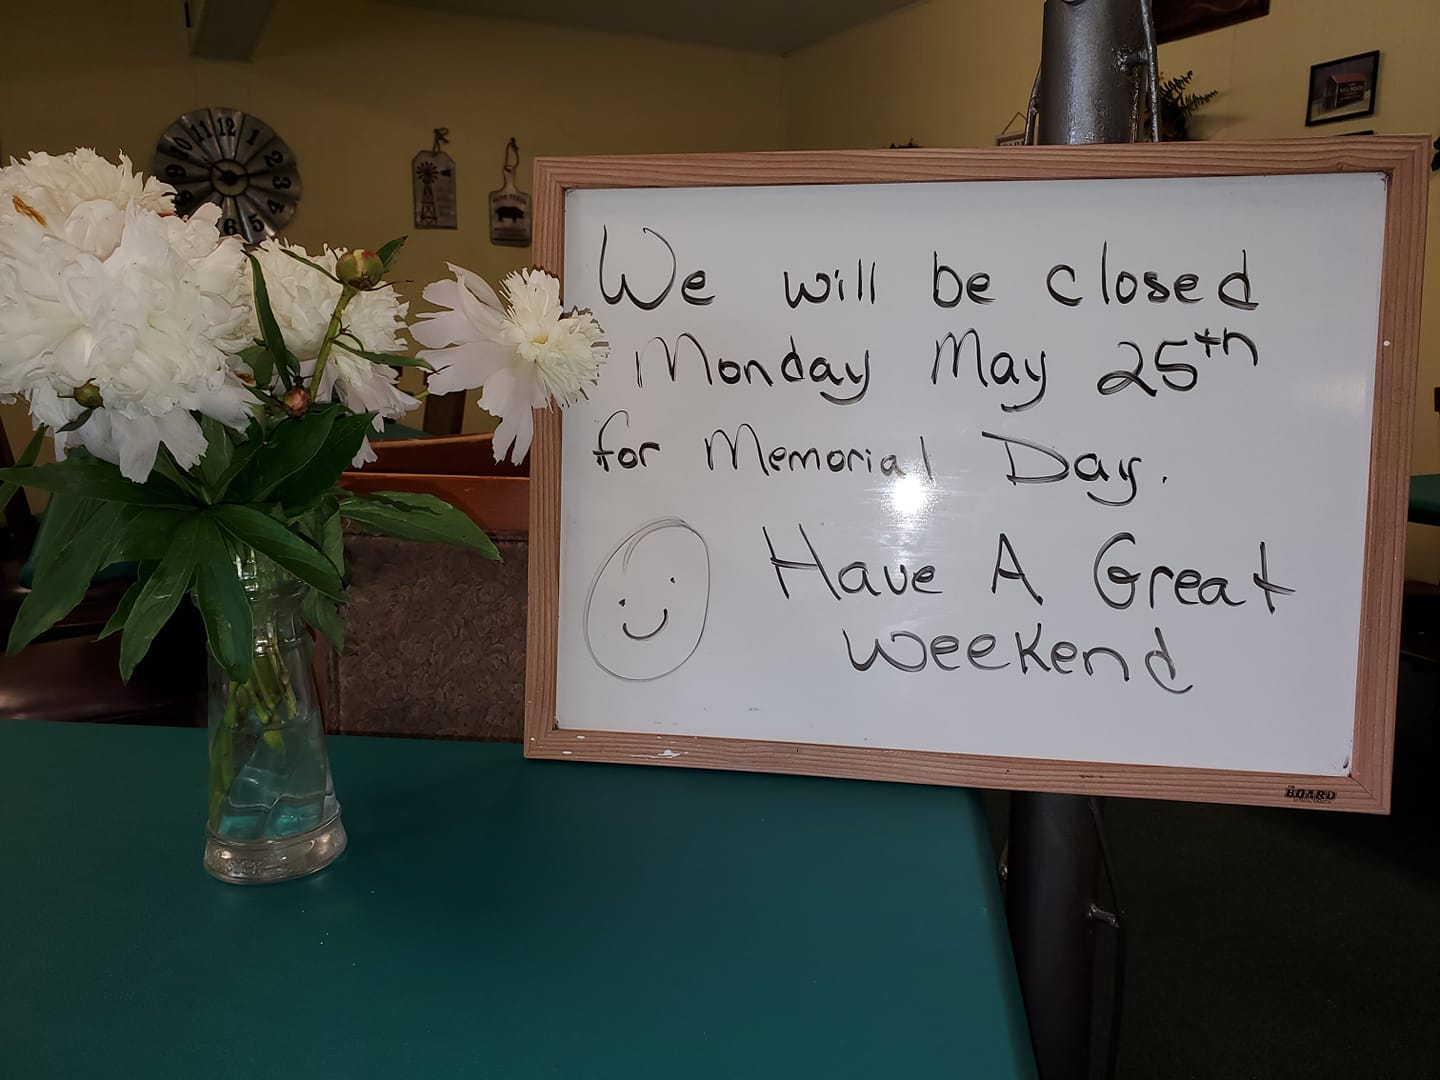 We will be closed
Monday May 25th
for Memorial Day.
Have A Great
Weekend
BOARD
10 11 12 1 2 3 4 5 6 8 9